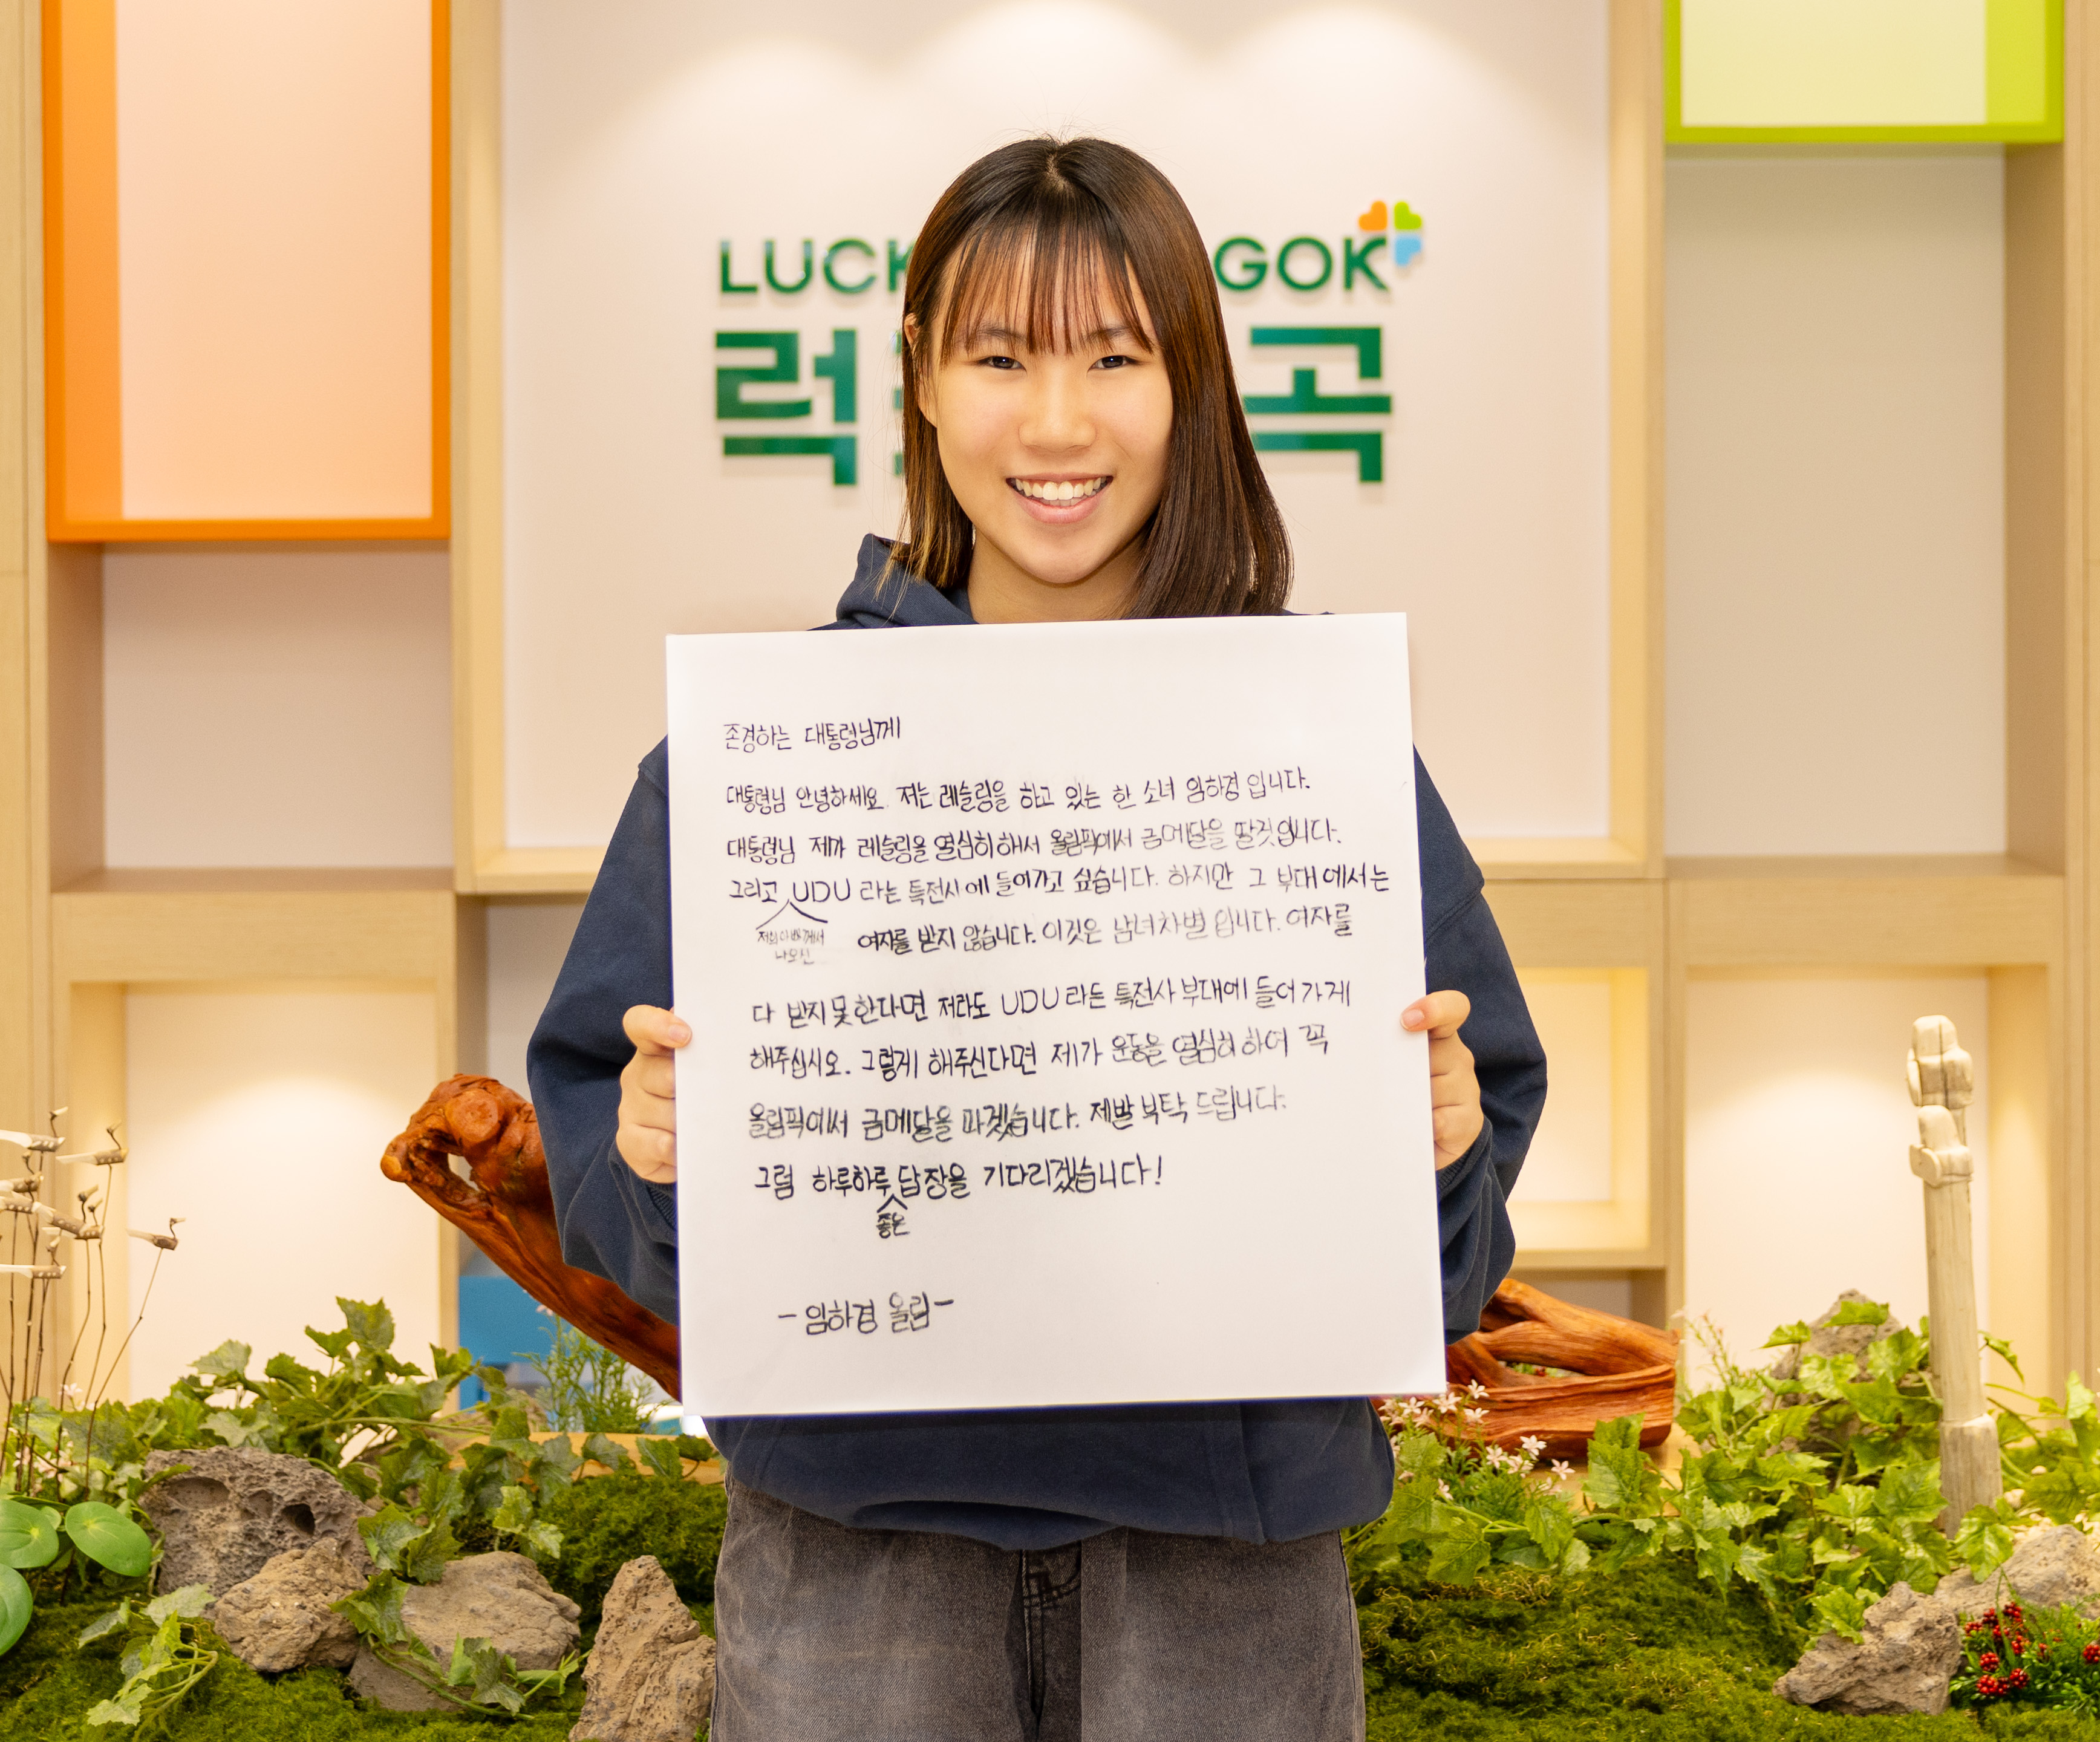 LUCK GOK
럭 곡
존경하는 대통령님께
대통령님 안녕하세요. 저는 레슬링을 하고 있는 한 소녀 임하경 입니다.
대통령님 제가 레슬링을 열심히 해서 올림픽에서 금메달을 딸것입니다.
그리고 UDU 라는 특전사에 들어가고 싶습니다. 하지만 그 부대에서는
저희아빠께서
나오신
여자를 받지 않습니다. 이것은 남녀차별 입니다. 여자를
다 받지못한다면 저라도 UDU라든 특전사 부대에 들어가게
해주십시오. 그렇게 해주신다면 제가 운동을 열심히 하여 꼭
올림픽에서 금메달을 따겠습니다. 제발 부탁 드립니다.
그럼 하루하루 답장을 기다리겠습니다!
좋은
- 임하경 올림 -